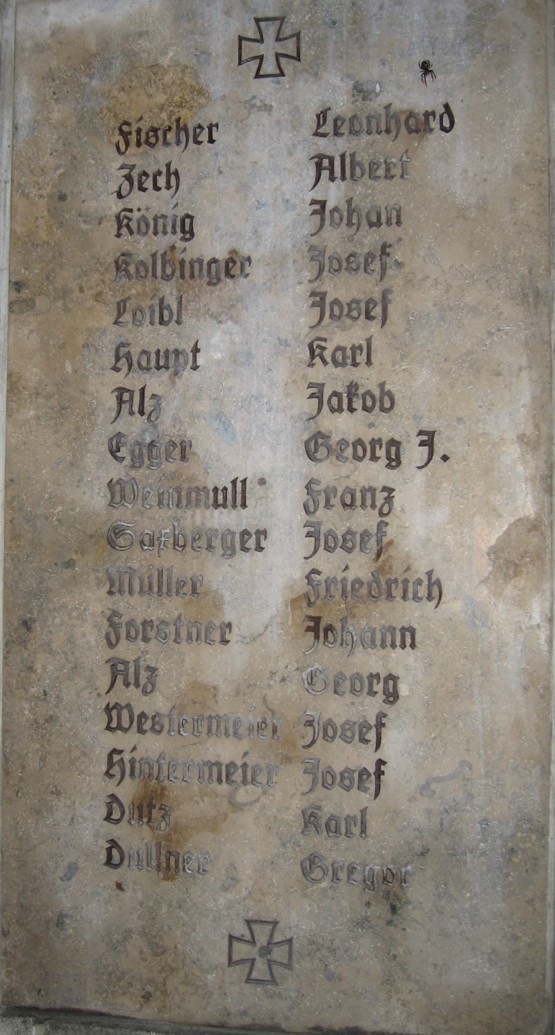 Fischer Leonhard
Zech Albert
König Johan
Kolbinger Josef
Loibl Josef
Haupt Karl
Alz Jakob
Egger Georg J.
Weinmull Franz
Saxberger Josef
Müller Friedrich
Forstner Johann
Alz Georg
Westermeier Josef
Hintermeier Josef
Dutz Karl
Dullner Gregor